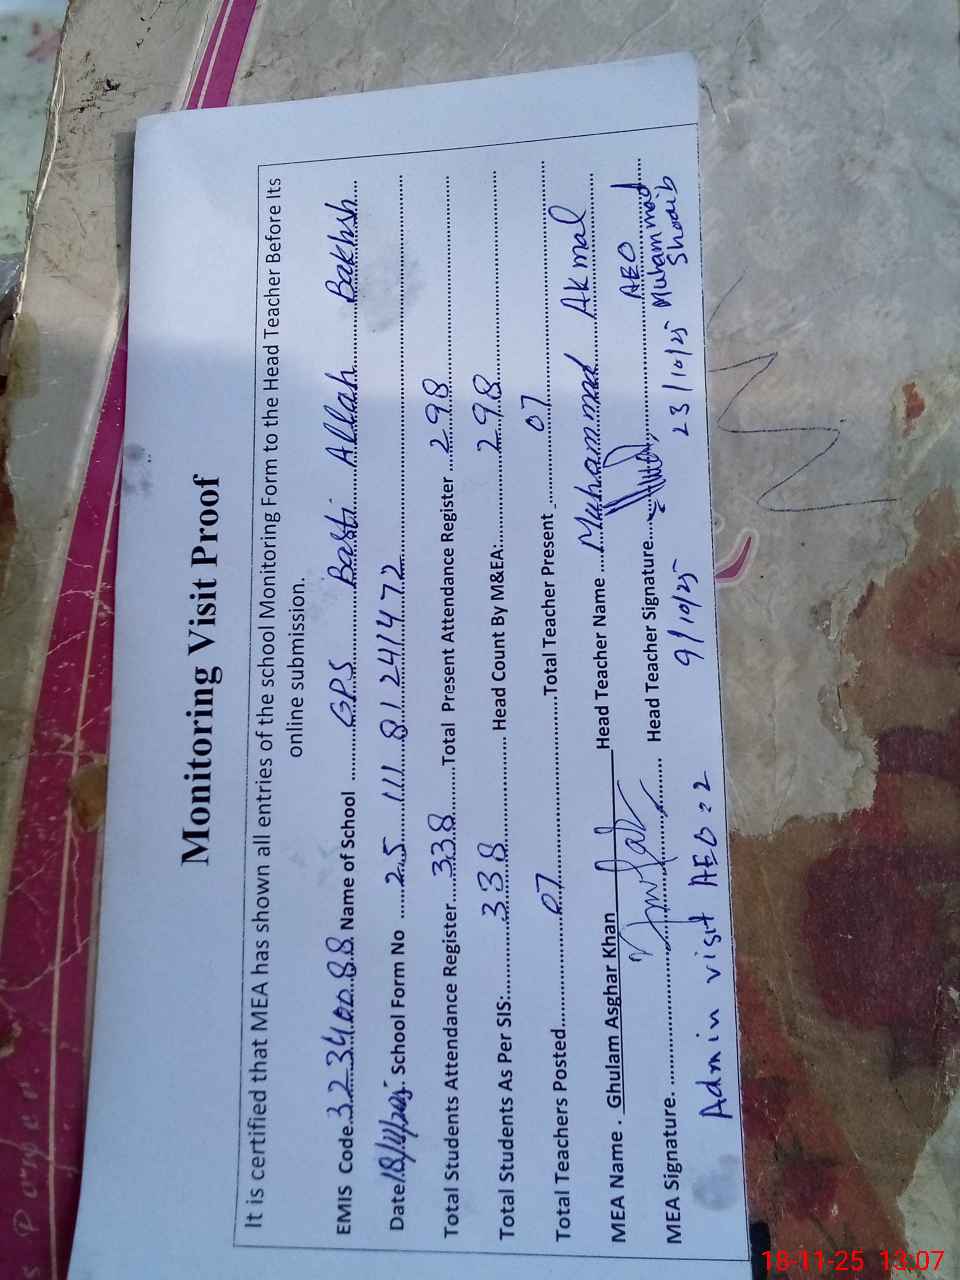 Monitoring Visit Proof
It is certified that MEA has shown all entries of the school Monitoring Form to the Head Teacher Before Its
online submission.
EMIS Code 32340088 Name of School GPS Basti Allah Bakhsh
Date 18/11/2025 School Form No 25 111 81 241472
Total Students Attendance Register 338 Total Present Attendance Register 298
Total Students As Per SIS: 338 Head Count By M&EA: 298
Total Teachers Posted 07 Total Teacher Present 07
MEA Name . Ghulam Asghar Khan Head Teacher Name Muhammad Akmal
MEA Signature. Head Teacher Signature AEO
Admin visit AEO = 2 9/10/25 23/10/25 Muhammad
Shoaib
18-11-25 13:07